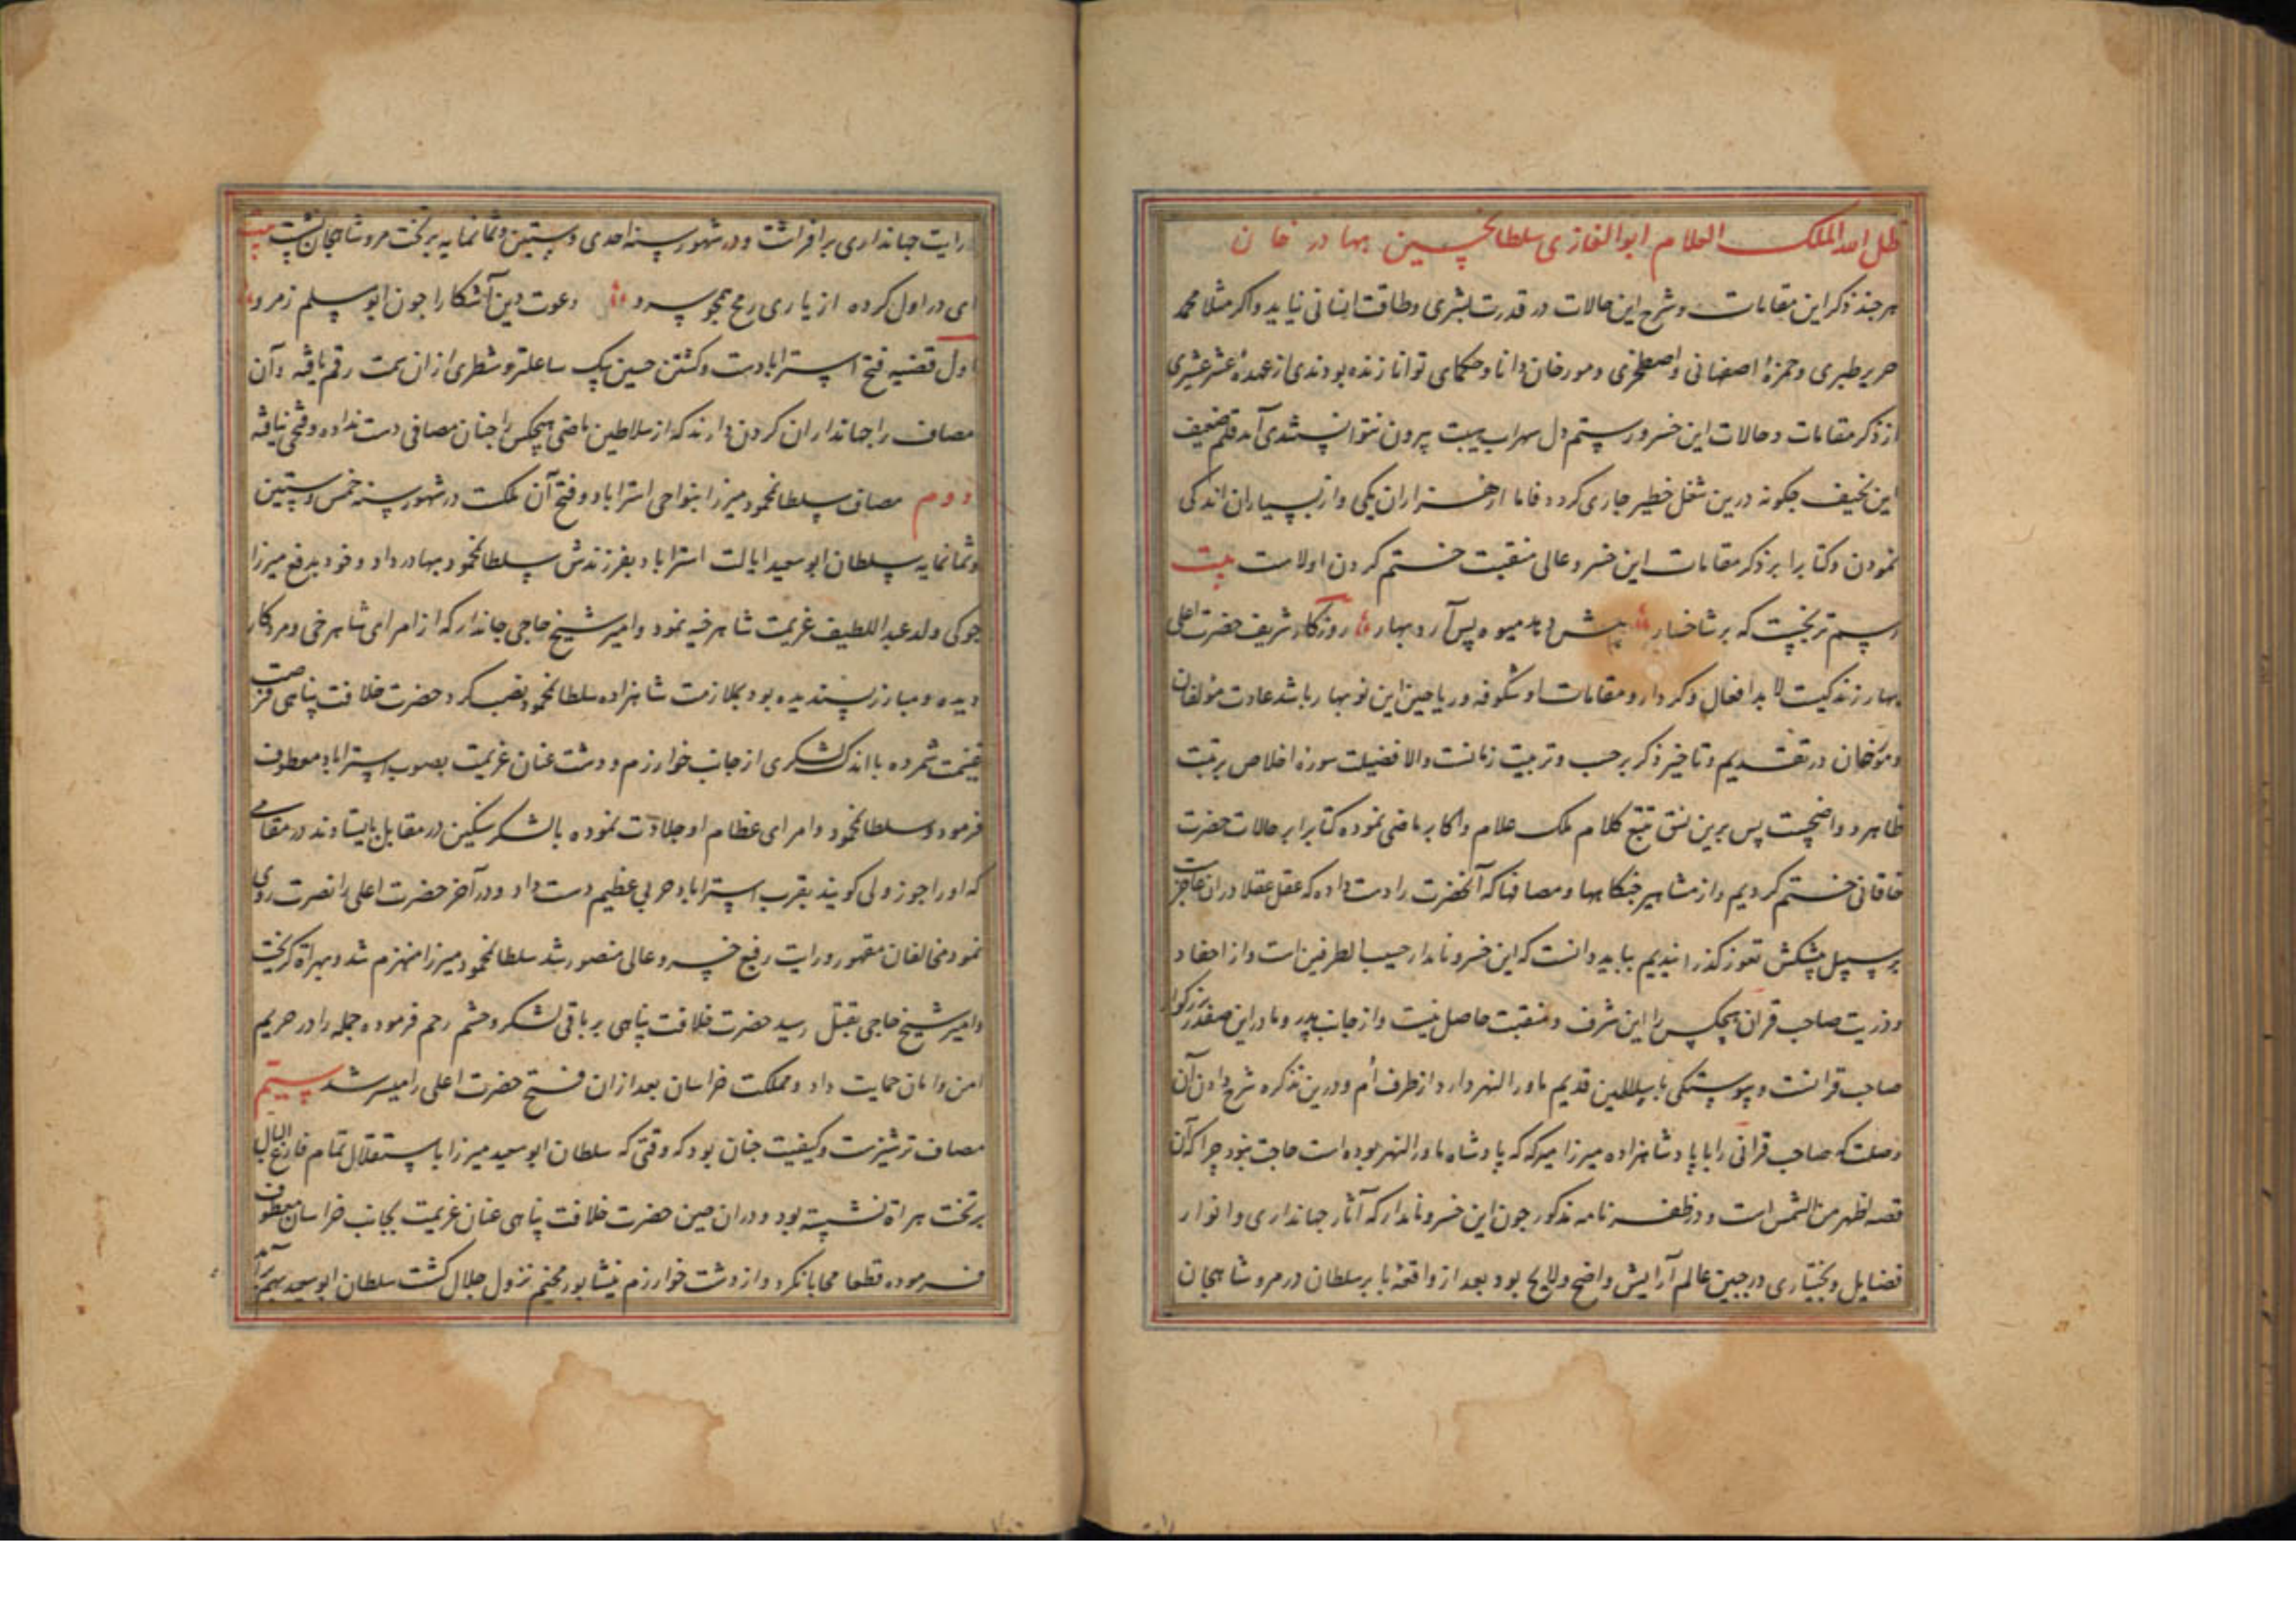 ظل الله الملک العلام ابو الغازی سلطانحسین بهادر خان
هرچند ذکر این مقامات و شرح این حالات در قدرت بشری و طاقت انسانی نیاید و اکر مثلا محمد
جریر طبری و حمزهٔ اصفهانی و اصطخری و مورخان دانا و حکمای توانا زنده بودندی از عهدهٔ عشر عشیری
از ذکر مقامات و حالات این خسرو رستم دل سهراب هیبت بیرون نتوانستندی آمد قلم ضعیف
این نحیف چکونه درین شغل خطیر جاری کردد فاما از هزاران یکی و از بسیاران اندکی
نمودن و کتابرا بر ذکر مقامات این خسرو عالی منقبت ختم کردن اولاست بیت
رسم تربخست که بر شاخسار پیش دهد میوه پس آرد بهار روزکار شریف حضرت اعلی
بهار زندکیست لابد افعال و کردار و مقامات او شکوفه و ریاحین این نوبهار باشد عادت مؤلفان
و مورخان در تقدیم و تاخیر ذکر برحسب و ترتیب زمانست والا فضیلت سوره اخلاص بر تبت
ظاهر و واضحست پس برین نسق تتبع کلام ملک علام و اکابر ماضی نموده کتابرا بر حالات حضرت
خاقانی ختم کردیم و از مشاهیر جنکاها و مصافها که آنحضرت را دست داده که عقل عقلا دران عاجز است
بر سبیل پیشکش تقوز کذرانیدیم بباید دانست که این خسرو نامدار حسیب الطرفین است و از احفاد
و ذریت صاحب قران هیچکس را این شرف و منقبت حاصل نیست و از جانب پدر و مادر این صفدر بزرکوار
صاحب قرانست و پیوستکی با سلاطین قدیم ماورالنهر دارد از طرف اُم و درین تذکره شرح دادن آن
وصلت که صاحب قرانی را با پادشاهزاده میرزا میرکه که پادشاه ماورالنهر بوده است حاجت نبود چرا که آن
قصه اظهر من الشمس است و در ظفرنامه مذکور چون این خسرو نامدار که آثار جهانداری و انوار
فضایل و بختیاری در جبین عالم آرایش واضح و لایح بود بعد از واقعهٔ بابر سلطان در مرو شاهجان
رایت جهانداری برافراشت و در شهور سنه احدی و ستین و ثمانمایه بر تخت مرو شاهجان نشست بیت
ای در اول کرده از یاری رمح همچو سرو دعوت دین آشکارا چون ابومسلم ز مرو
اول قضیه فتح استراباد است و کشتن حسین بیک ساعلتو و شطری ازان سمت رقم یافته و آن
مصاف را جهانداران کردن دارند که از سلاطین ماضی هیچکس را چنان مصافی دست نداده و فتحی نیافته
دوم مصاف سلطانمحمود میرزا بنواحی استراباد و فتح آن ملکت در شهور سنه خمس و ستین
و ثمانمایه سلطان ابوسعید ایالت استراباد بفرزندش سلطانمحمود بهادر داد و خود بدفع میرزا
جوکی ولد عبداللطیف عزیمت شاهرخیه نمود و امیر شیخ حاجی جاندار که از امرای شاهرخی و مرد کار
دیده و مبارز پسندیده بود بملازمت شاهزاده سلطانمحمود نصب کرد حضرت خلافت پناهی فرصت
غنیمت شمرده با اندک لشکری از جانب خوارزم و دشت عنان عزیمت بصوب استراباد معطوف
فرمود و سلطانمحمود و امرای عظام او جلادت نموده با لشکر سنکین در مقابل بایستادند در مقامی
که او را جوز ولی کویند بقرب استراباد حربی عظیم دست داد و در آخر حضرت اعلی را نصرت روی
نمود مخالفان مقهور و رایت رفیع خسرو عالی منصور شد سلطانمحمود میرزا منهزم شد و بهراة کریخت
و امیر شیخ حاجی بقتل رسید حضرت خلافت پناهی بر باقی لشکر و حشم رحم فرموده جمله را در حریم
امن و امان حمایت داد و مملکت خراسان بعد ازان فتح حضرت اعلی را میسر شد سیم
مصاف ترشیزست و کیفیت چنان بود که وقتی که سلطان ابوسعید میرزا باستقلال تمام فارغ البال
بر تخت هراة نشسته بود و دران حین حضرت خلافت پناهی عنان عزیمت بجانب خراسان معطوف
فرموده قطعا محابا نکرد و از دشت خوارزم نیشابور مخیم نزول جلال کشت سلطان ابوسعید بهم برآمد